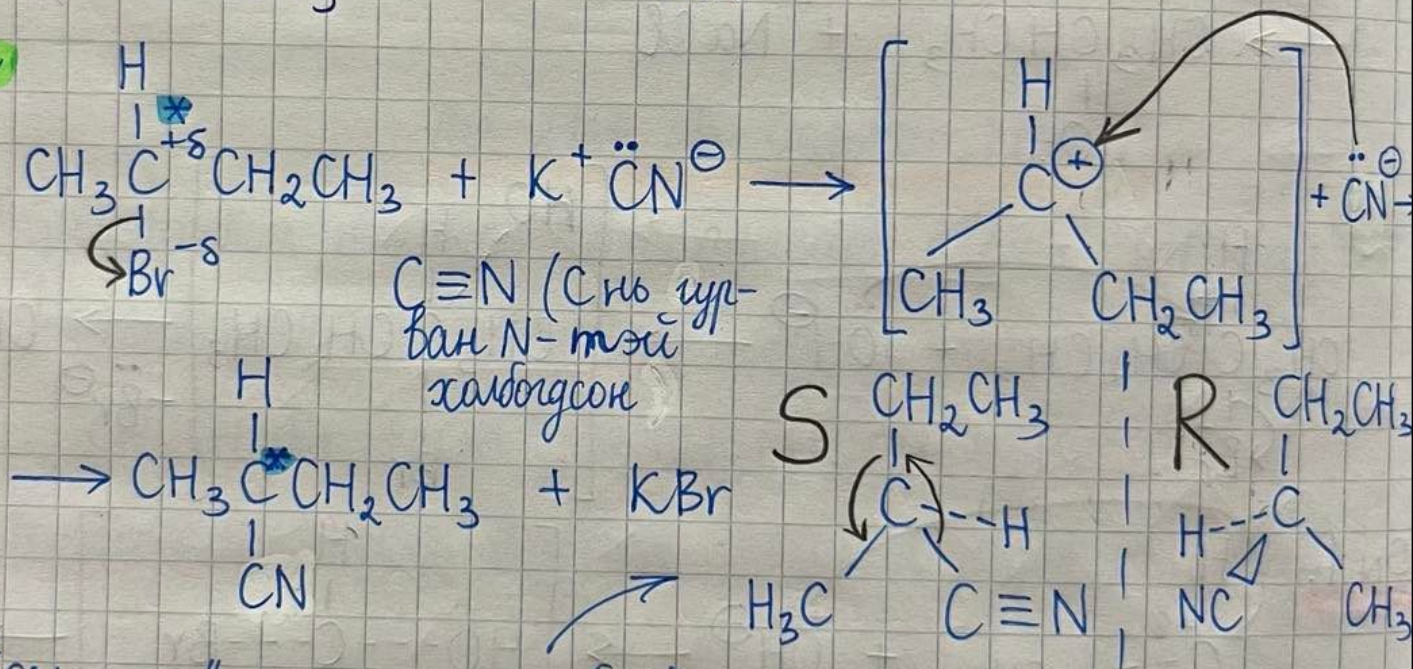 H
CH₃C*⁺ᵟCH₂CH₃ + K⁺ C̈N⊖ → [ H C⊕ CH₃ CH₂CH₃ ] + C̈N⊖ →
Br⁻ᵟ
C≡N (C нь гур-
ван N-тэй
холбогдсон
H
→ CH₃C*CH₂CH₃ + KBr
CN
S
CH₂CH₃
C---H
H₃C C≡N
R
CH₂CH₃
H---C
NC CH₃